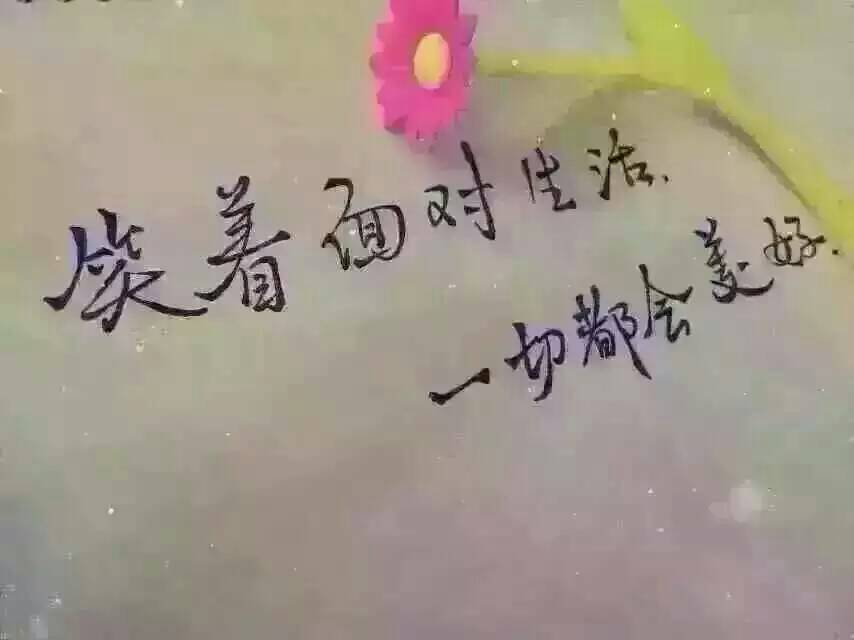 笑着面对生活.
一切都会美好.